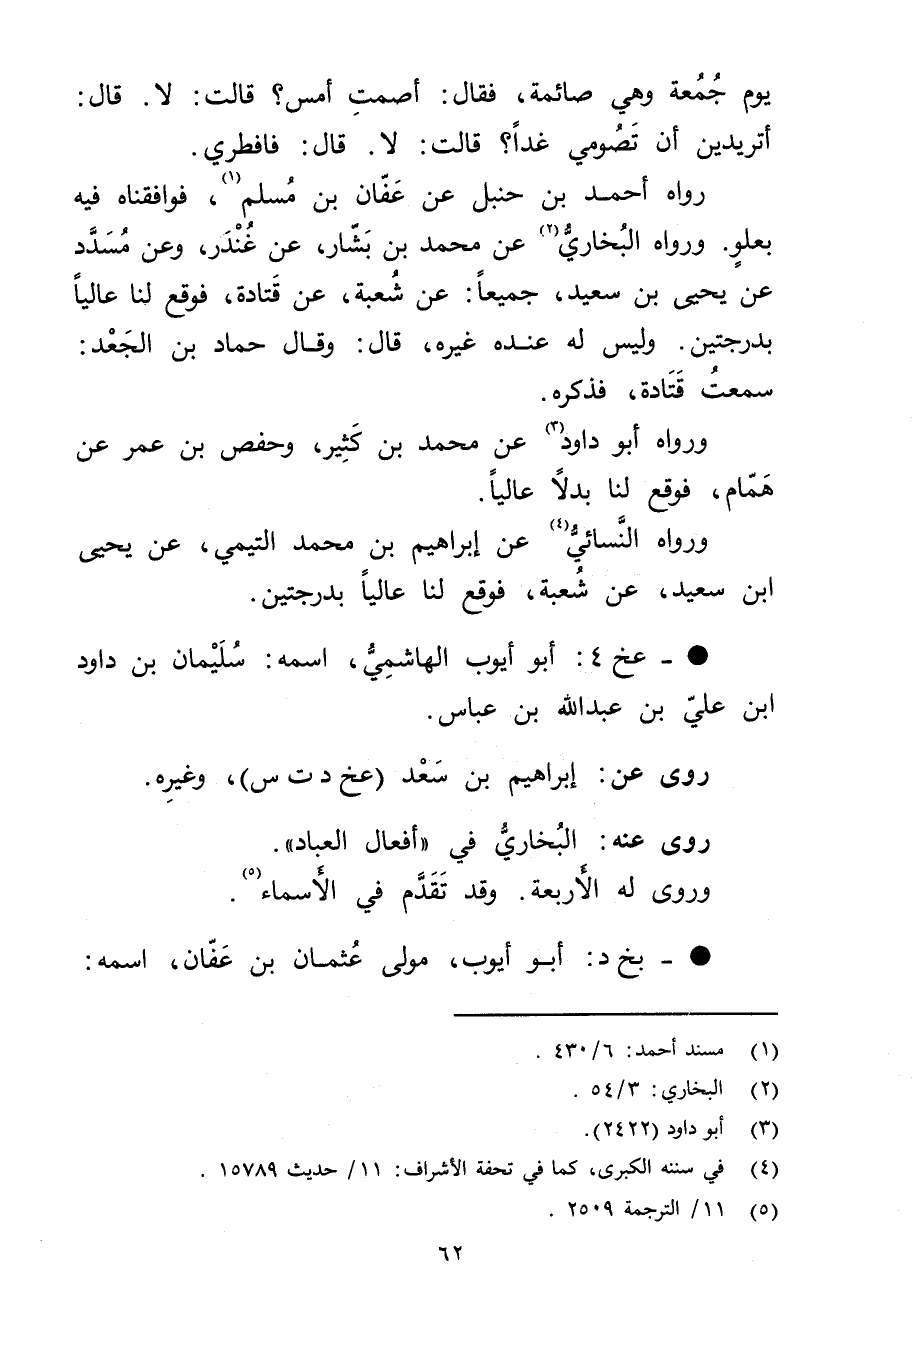 يوم جُمُعة وهي صائمة، فقال: أصمتِ أمس؟ قالت: لا. قال:
أتريدين أن تَصُومي غداً؟ قالت: لا. قال: فافطري.
رواه أحمد بن حنبل عن عَفّان بن مُسلم(١)، فوافقناه فيه
بعلوٍ. ورواه البُخاريُّ(٢) عن محمد بن بَشّار، عن غُنْدَر، وعن مُسَدَّد
عن يحيى بن سعيد، جميعاً: عن شُعبة، عن قَتادة، فوقع لنا عالياً
بدرجتين. وليس له عنده غيره، قال: وقال حماد بن الجَعْد:
سمعتُ قَتَادة، فذكره.
ورواه أبو داود(٣) عن محمد بن كَثِير، وحفص بن عمر عن
هَمّام، فوقع لنا بدلاً عالياً.
ورواه النَّسائيُّ(٤) عن إبراهيم بن محمد التيمي، عن يحيى
ابن سعيد، عن شُعبة، فوقع لنا عالياً بدرجتين.
● ـ عخ ٤: أبو أيوب الهاشمِيُّ، اسمه: سُلَيْمان بن داود
ابن عليّ بن عبدالله بن عباس.
روى عن: إبراهيم بن سَعْد (عخ د ت س)، وغيرِه.
روى عنه: البُخاريُّ في «أفعال العباد».
وروى له الأربعة. وقد تَقَدَّم في الأسماء(٥).
● ـ بخ د: أبو أيوب، مولى عُثمان بن عَفّان، اسمه:
(١) مسند أحمد: ٦/ ٤٣٠ .
(٢) البخاري: ٣/ ٥٤ .
(٣) أبو داود (٢٤٢٢).
(٤) في سننه الكبرى، كما في تحفة الأشراف: ١١/ حديث ١٥٧٨٩ .
(٥) ١١/ الترجمة ٢٥٠٩ .
٦٢